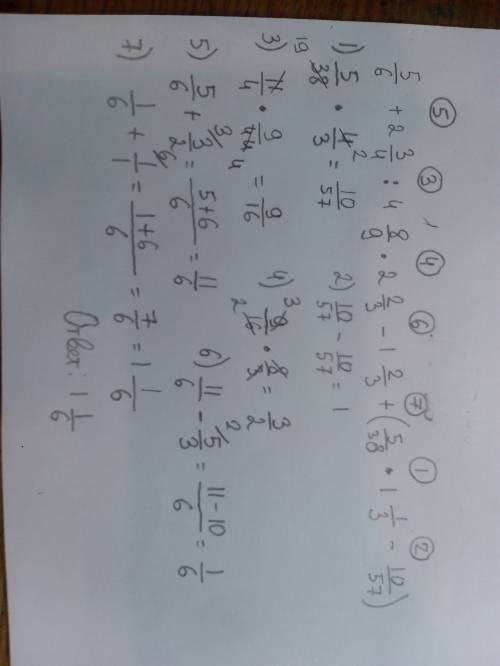 ⑤ ③ ④ ⑥ ⑦ ① ②
5/6 + 2 3/4 : 4 8/9 · 2 2/3 - 1 2/3 + (5/38 · 1 1/3 - 10/57)
1) 5/38 · 4/3 = 10/57 2) 10/57 - 10/57 = 1
19 2
3) 11/4 · 9/44 = 9/16 4) 9/16 · 8/3 = 3/2
4 3 2
5) 5/6 + 3/2 = 5+6/6 = 11/6 6) 11/6 - 5/3 = 11-10/6 = 1/6
3 2
7) 1/6 + 1/1 = 1+6/6 = 7/6 = 1 1/6
6
Ответ: 1 1/6